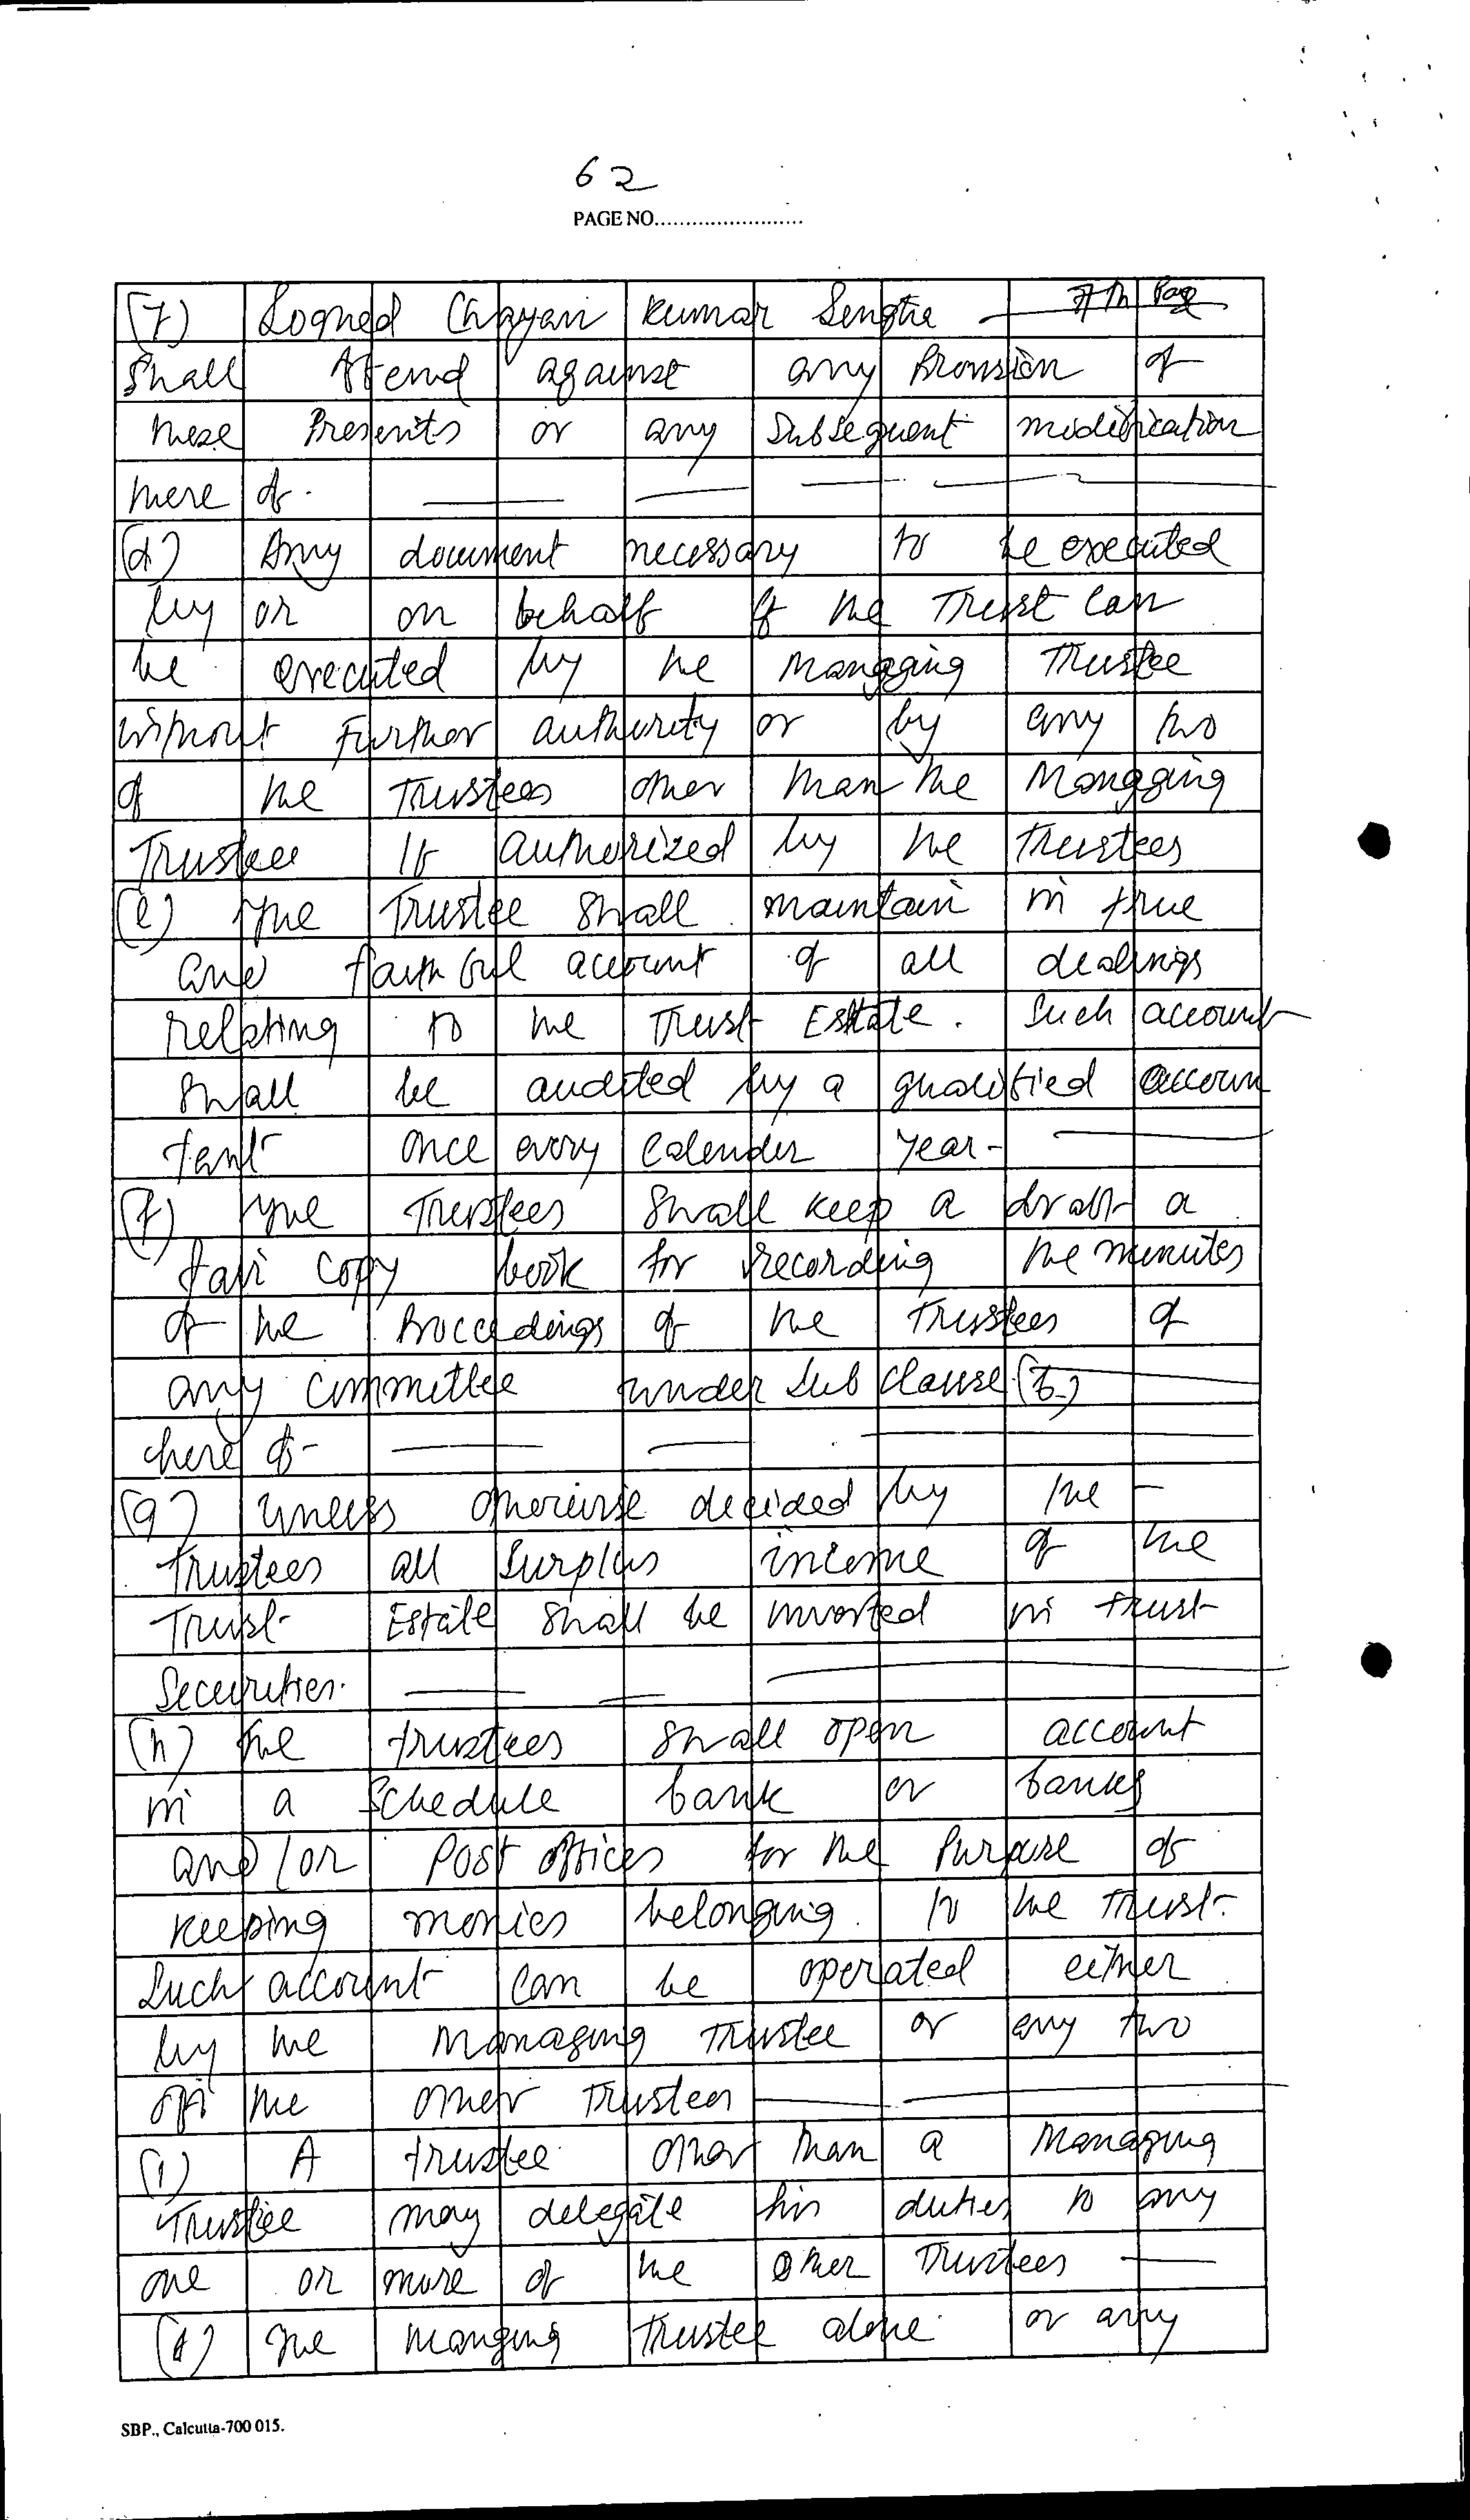 62
PAGE NO........................
(7) Signed Chayan Kumar Sengha — 7th Page
Shall offend against any Provision of
these Presents or any Subsequent modification
there of.
(d) Any document necessary to be executed
by or on behalf of the Trust can
be executed by the Managing Trustee
without Further authority or by any two
of the Trustees other than the Managing
Trustee If authorized by the Trustees
(e) The Trustee shall maintain in true
and faithful account of all dealings
relating to the Trust Estate. Such account
shall be audited by a qualified accoun
tant once every calender year-
(f) The Trustees shall keep a draft a
fair copy book for recording the minutes
of the Proceedings of the Trustees of
any committee under Sub Clause (b)
here of-
(g) Unless otherwise decided by the -
Trustees all Surplus income of the
Trust Estate shall be invested in trust
Securities.
(h) The trustees shall open account
in a Schedule bank or banks
and/or Post offices for the Purpose of
keeping monies belonging to the Trust.
Such account can be operated either
by the Managing Trustee or any two
of the other Trustees
(i) A trustee other than a Managing
Trustee may delegate his duties to any
one or more of the other Trustees —
The Manging Trustee alone or any
SBP., Calcutta-700 015.